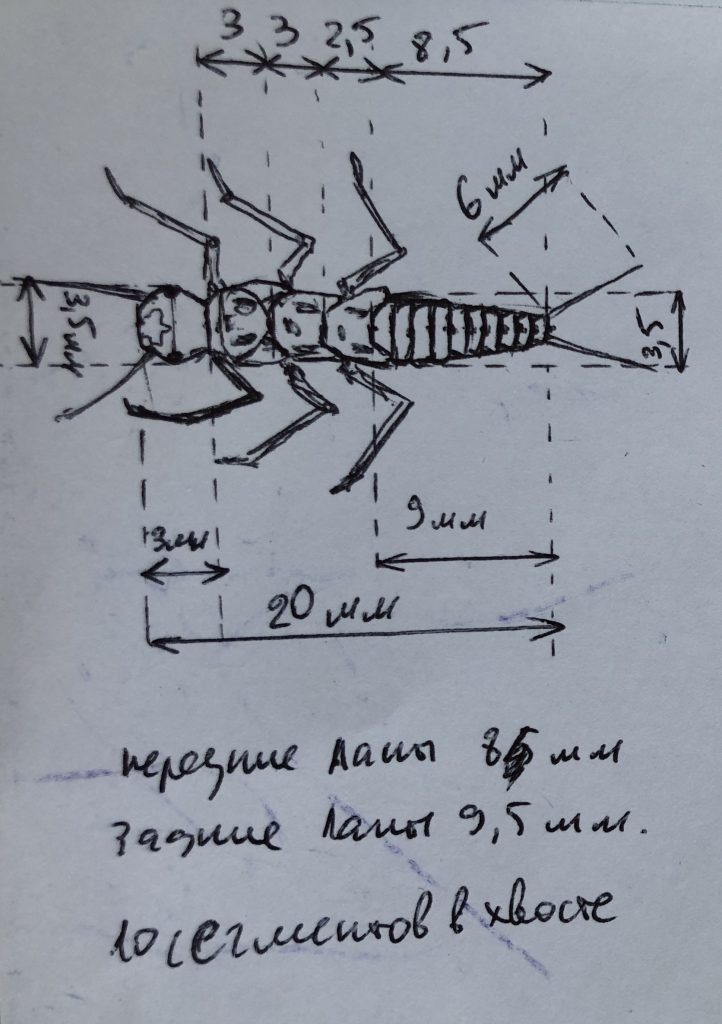 3 3 2,5 8,5
6 мм
3,5 мм
3,5
9 мм
3 мм
20 мм
передние лапы 8 мм
задние лапы 9,5 мм.
10 сегментов в хвосте